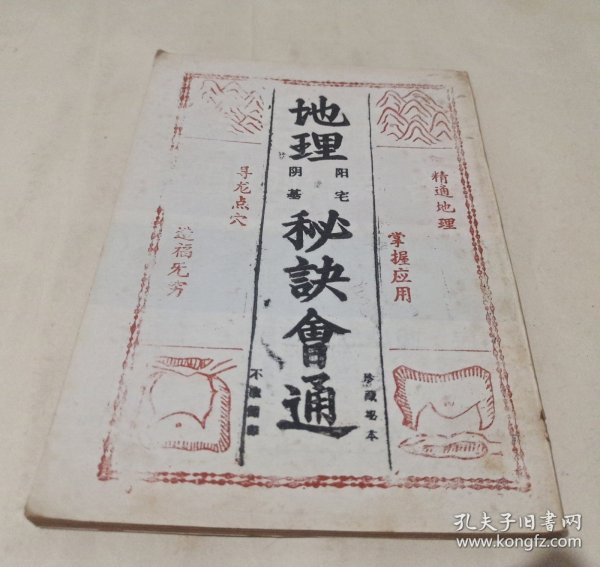 精通地理
掌握应用
地理
阳宅
阴墓
秘訣會通
珍藏秘本
寻龙点穴
造福无穷
孔夫子旧书网
www.kongfz.com